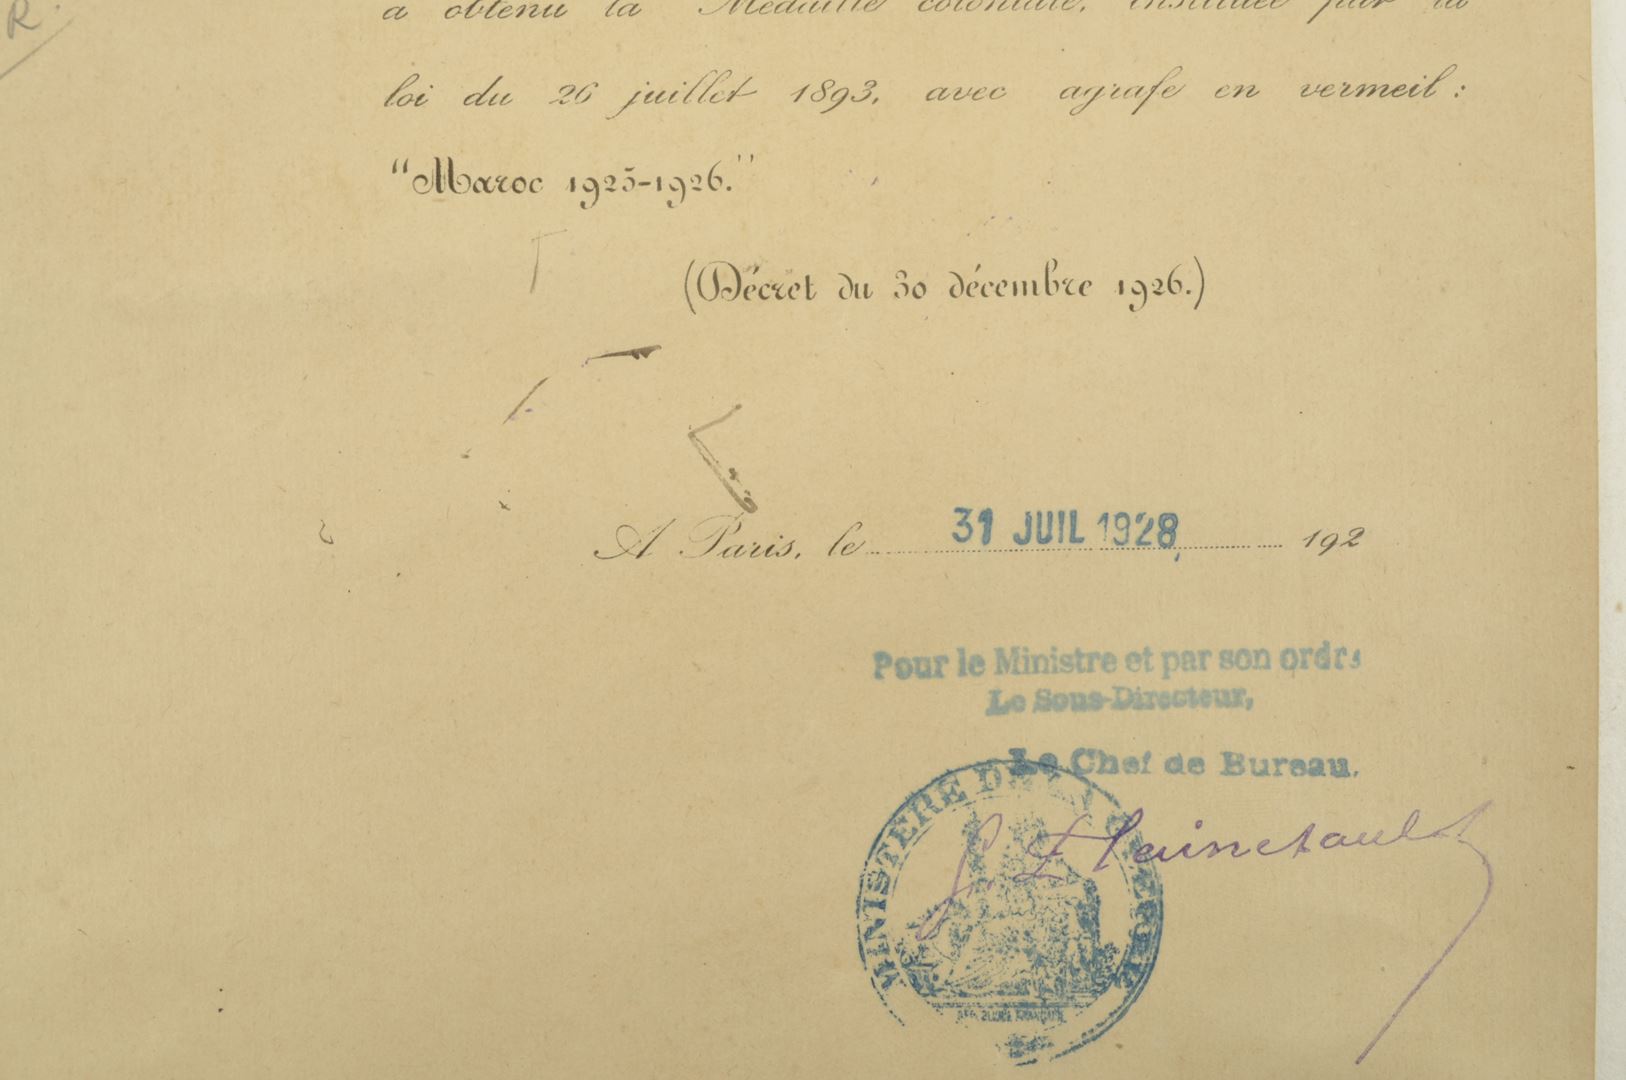 R.
a obtenu la Médaille coloniale, instituée par la
loi du 26 juillet 1893, avec agrafe en vermeil :
"Maroc 1925-1926."
(Décret du 30 décembre 1926.)
A Paris, le 31 JUIL 1928 192
Pour le Ministre et par son ordre
Le Sous-Directeur,
Le Chef de Bureau.
MINISTERE DE LA GUERRE
REPUBLIQUE FRANÇAISE